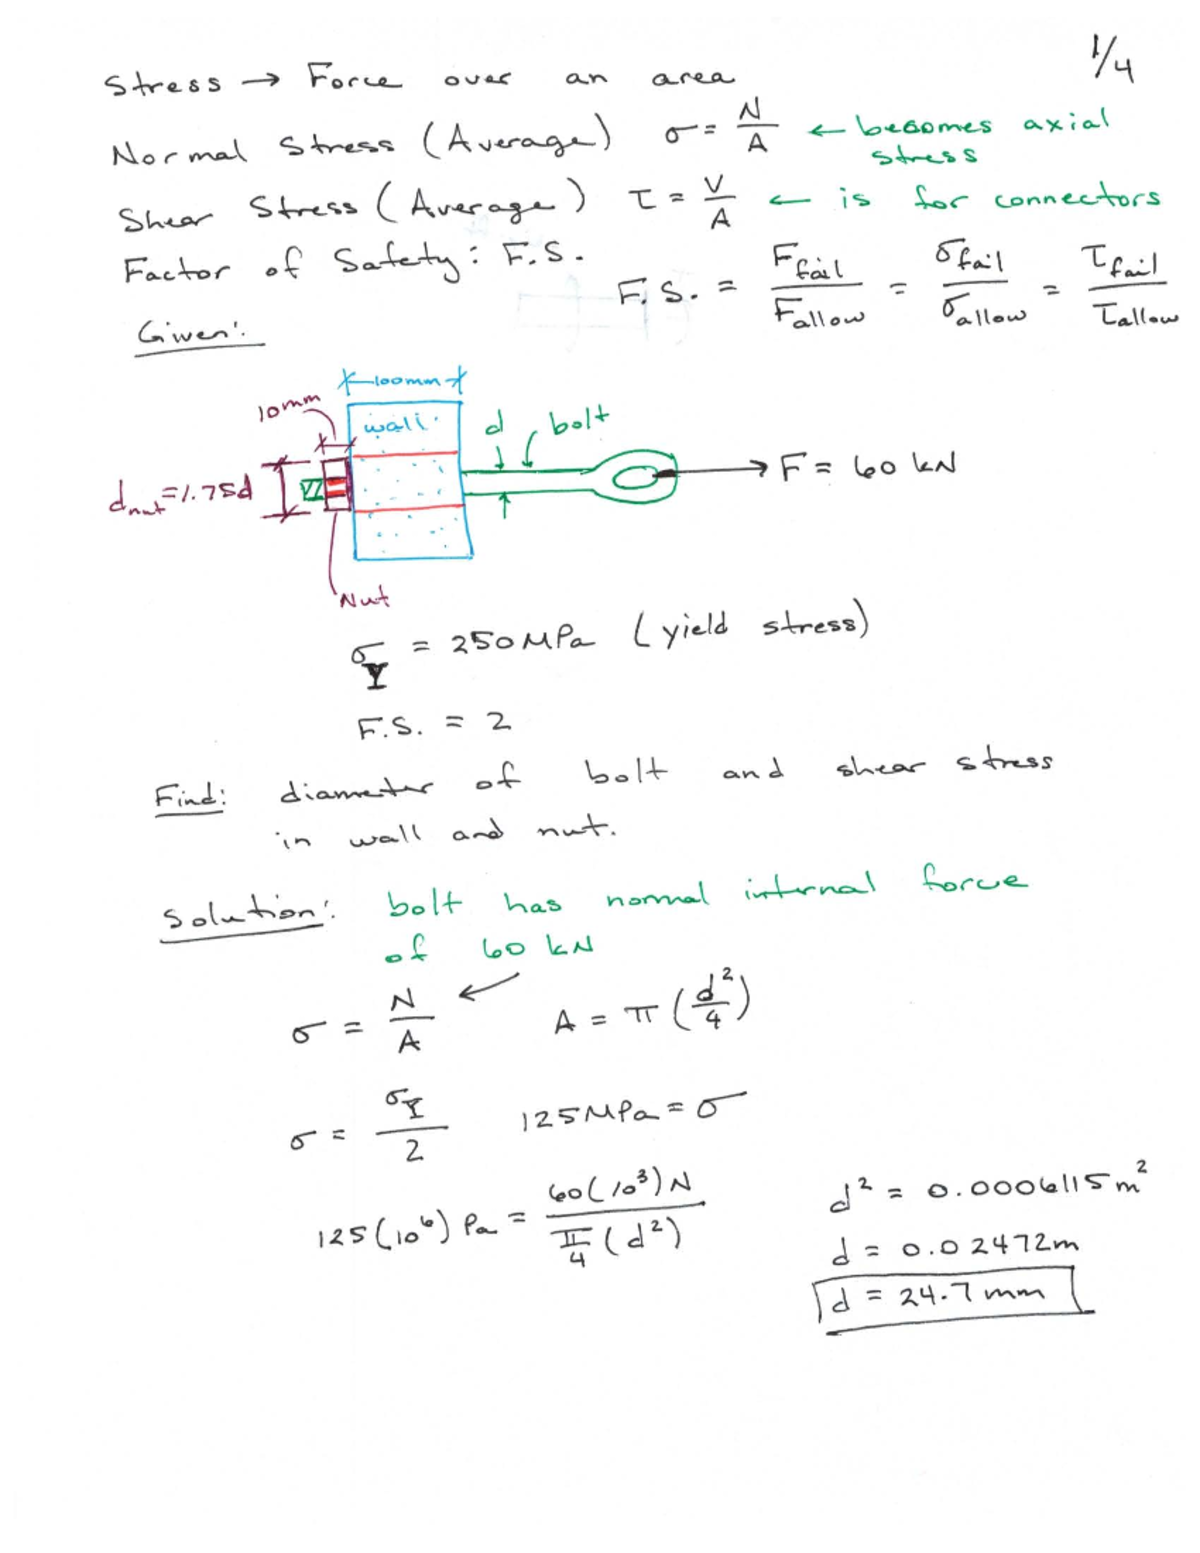 1/4
Stress → Force over an area
Normal Stress (Average) σ = N/A ← becomes axial stress
Shear Stress (Average) τ = V/A ← is for connectors
Factor of Safety: F.S.
F.S. = F_fail/F_allow = σ_fail/σ_allow = τ_fail/τ_allow
Given:
100mm
10mm
wall
d
bolt
F = 60 kN
d_nut = 1.75d
Nut
σ_Y = 250 MPa (yield stress)
F.S. = 2
Find: diameter of bolt and shear stress
in wall and nut.
Solution: bolt has normal internal force
of 60 kN
σ = N/A ← A = π (d²/4)
σ = σ_Y/2 125 MPa = σ
125(10⁶) Pa = 60(10³)N / π/4 (d²)
d² = 0.0006115 m²
d = 0.02472m
d = 24.7 mm